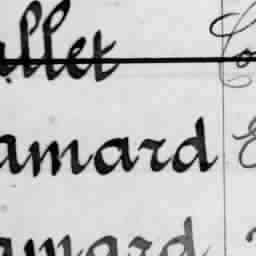 allet
amard
amard